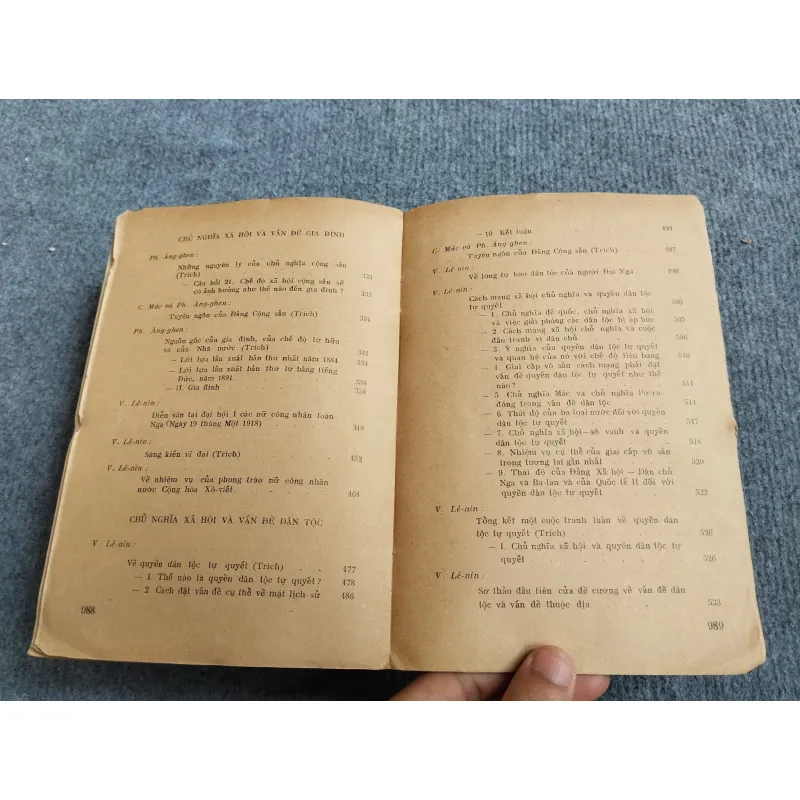 CHỦ NGHĨA XÃ HỘI VÀ VẤN ĐỀ GIA ĐÌNH
Ph. Ăng-ghen :
Những nguyên lý của chủ nghĩa cộng sản
(Trích) 333
— Câu hỏi 21. Chế độ xã hội cộng sản sẽ
có ảnh hưởng như thế nào đến gia đình ? 333
C. Mác và Ph. Ăng-ghen :
Tuyên ngôn của Đảng Cộng sản (Trích) 334
Ph. Ăng-ghen :
Nguồn gốc của gia đình, của chế độ tư hữu
và của Nhà nước (Trích) 334
— Lời tựa lần xuất bản thứ nhất năm 1884 334
— Lời tựa lần xuất bản thứ tư bằng tiếng
Đức, năm 1891 336
— II. Gia đình 358
V. Lê-nin :
Diễn văn tại đại hội I các nữ công nhân toàn
Nga (Ngày 19 tháng Một 1918)
V. Lê-nin :
Sáng kiến vĩ đại (Trích) 452
V. Lê-nin :
Về nhiệm vụ của phong trào nữ công nhân
nước Cộng hòa Xô-viết. 464
CHỦ NGHĨA XÃ HỘI VÀ VẤN ĐỀ DÂN TỘC
V. Lê-nin :
Về quyền dân tộc tự quyết (Trích) . . 477
— 1. Thế nào là quyền dân tộc tự quyết ? 478
— 2. Cách đặt vấn đề cụ thể về mặt lịch sử 486
988
— 10. Kết luận 491
C. Mác và Ph. Ăng-ghen :
Tuyên ngôn của Đảng Cộng sản (Trích) 497
V. Lê nin :
Về lòng tự hào dân tộc của người Đại Nga 498
V. Lê-nin :
Cách mạng xã hội chủ nghĩa và quyền dân tộc
tự quyết 505
— 1. Chủ nghĩa đế quốc, chủ nghĩa xã hội
và việc giải phóng các dân tộc bị áp bức 505
— 2. Cách mạng xã hội chủ nghĩa và cuộc
đấu tranh vì dân chủ 506
— 3. Ý nghĩa của quyền dân tộc tự quyết
và quan hệ của nó với chế độ liên bang 510
— 4. Giai cấp vô sản cách mạng phải đặt
vấn đề quyền dân tộc tự quyết như thế
nào ? 511
— 5. Chủ nghĩa Mác và chủ nghĩa Pơ-ru-
đông trong vấn đề dân tộc 514
— 6. Thái độ của ba loại nước đối với quyền
dân tộc tự quyết 517
— 7. Chủ nghĩa xã hội—sô vanh và quyền
dân tộc tự quyết 518
— 8. Nhiệm vụ cụ thể của giai cấp vô sản
trong tương lai gần nhất 520
— 9. Thái độ của Đảng Xã hội — Dân chủ
Nga và Ba-lan và của Quốc tế II đối với
quyền dân tộc tự quyết 522
V. Lê-nin :
Tổng kết một cuộc tranh luận về quyền dân
tộc tự quyết (Trích) 526
— 1. Chủ nghĩa xã hội và quyền dân tộc tự
quyết 526
V. Lê-nin :
Sơ thảo đầu tiên của đề cương về vấn đề dân
tộc và vấn đề thuộc địa 533
989